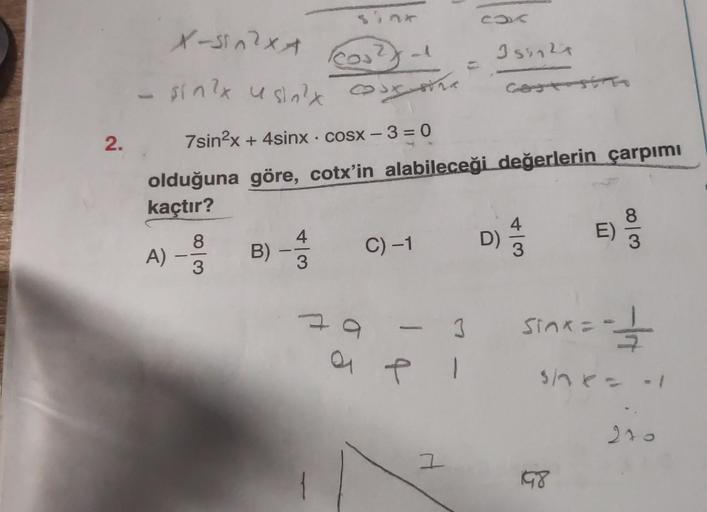 sinx cosx
x-sin²x+ cos²x-1 = 3sin²x
- sin²x 4sin²x cosx sinx
2. 7sin²x + 4sinx · cosx – 3 = 0
olduğuna göre, cotx'in alabileceği değerlerin çarpımı
kaçtır?
A) –8/3 B) –4/3 C) –1 D) 4/3 E) 8/3
7a – 3 sinx = -1/7
a + 1 sinx = -1
270
1 7 48